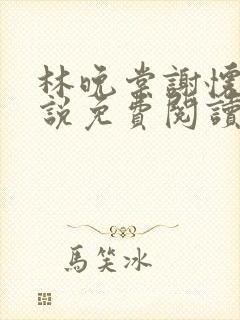 林晚棠謝懷
說免費閱讀
馬笑冰